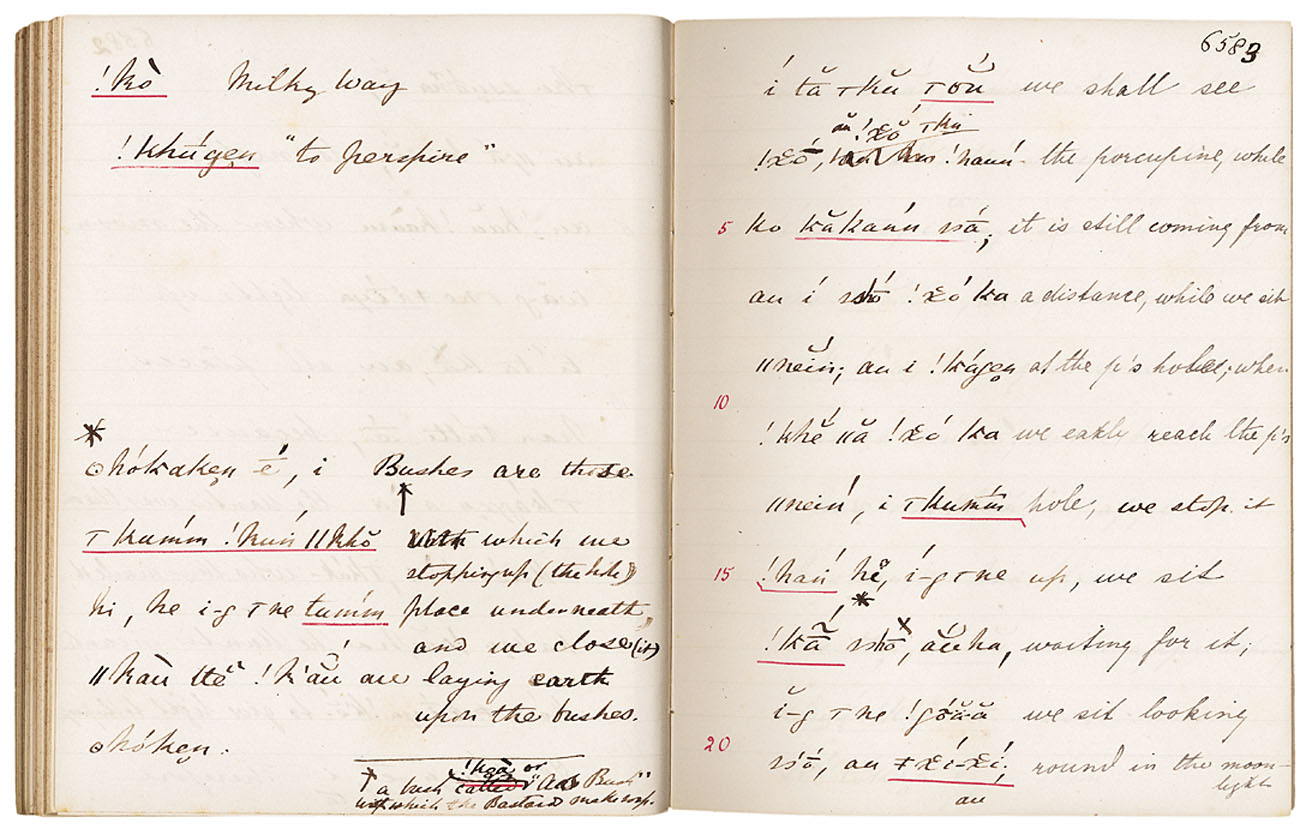 !kò Milky Way
!khúgen "to perspire"
*
ʘhókaken é, i Bushes are these
ꞇkumḿ !kuń ǁkhŏ with which we
stopping up (the hole)
hi, he i-g ꞇne tumḿ place underneath,
and we close (it)
ǁkàu ttĕ !k'aŭ au laying earth
upon the bushes.
ʘhóken.
† a bush !kòä or "Bush"
which the Bastards make soap.
6583
í tă ꞇkŭ ꞇoŭ we shall see
!xŏ ꞇku
!xó, !hauń the porcupine, while
5 ko kăkaúń ssā; it is still coming from
au í sshó !xó ka a distance, while we sit
ǁneĭn; au i !kágen at the p's hole; when
10
!khĕ ǁă !xó ka we early reach the p's
ǁneiń, i ꞇkumḿ hole, we stop it
15 !hań hĕ, í-g ꞇne up, we sit
* x
!kã sshō, aŭha, waiting for it;
ĭ-g ꞇne !góăă we sit looking
20 ssʼō, au ǂxí-xí; round in the moon-
au light